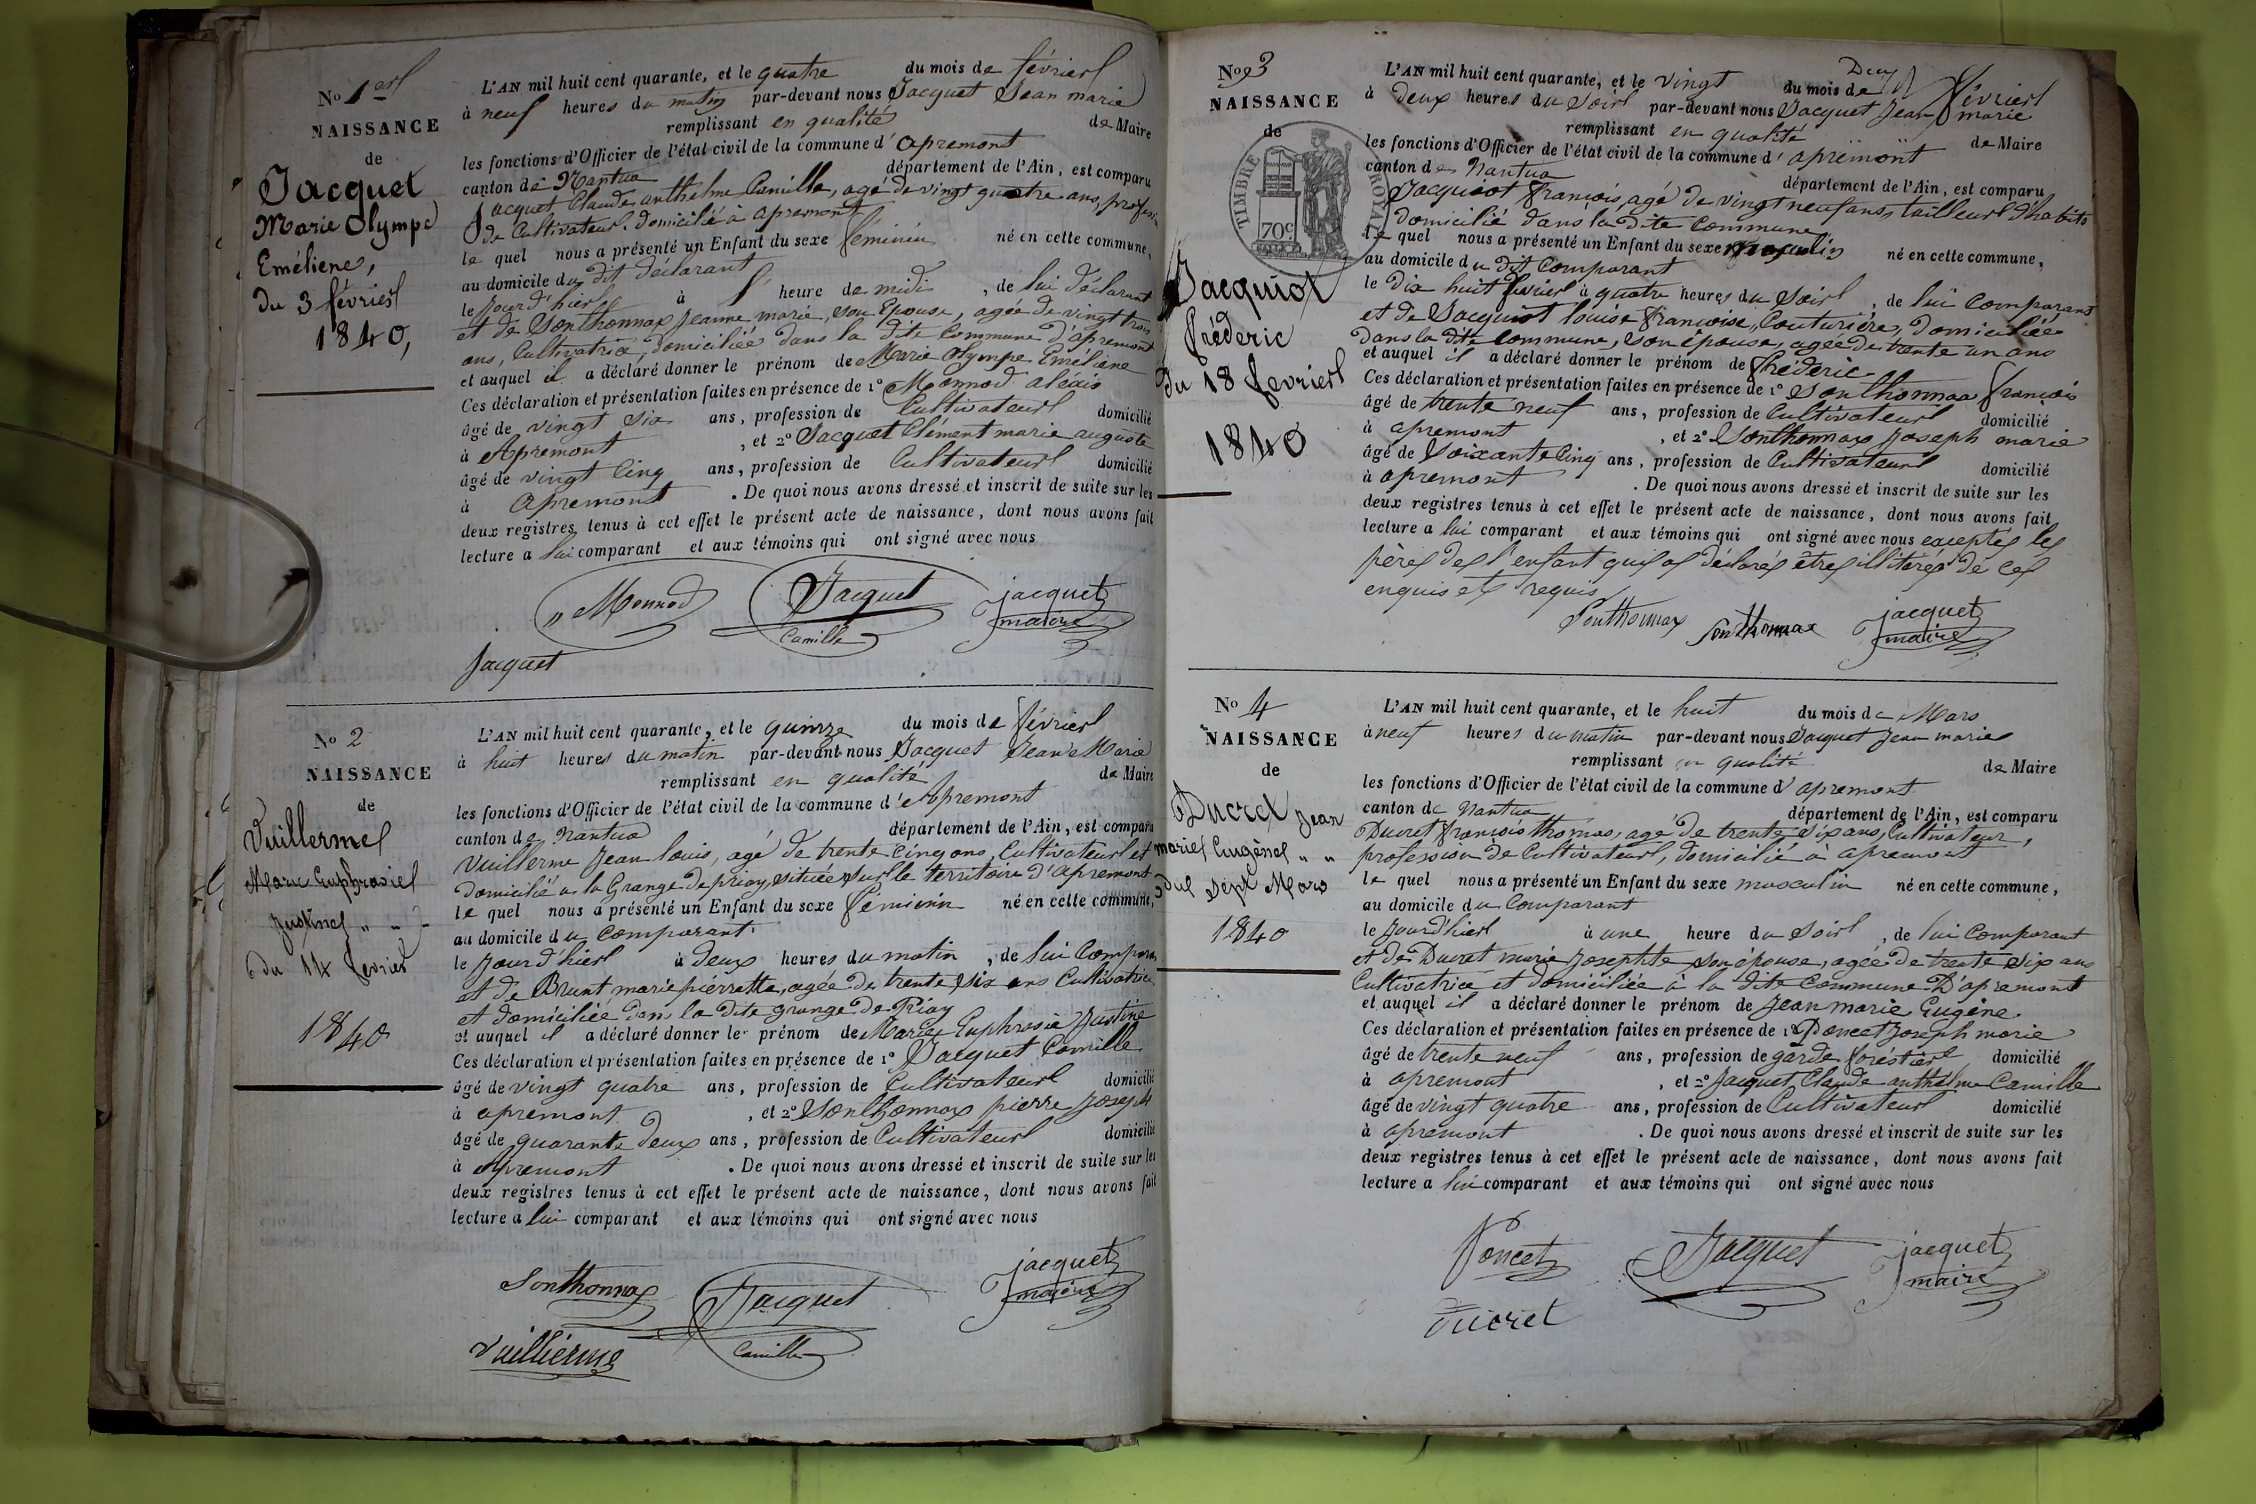 No 1er
NAISSANCE
de
Jacquet
Marie Olympe
Eméliene,
du 3 février
1840,
L'AN mil huit cent quarante, et le quatre du mois de février
à neuf heures du matin par-devant nous Jacquet Jean marie
remplissant en qualité de Maire
les fonctions d'Officier de l'état civil de la commune d'apremont
canton de Nantua département de l'Ain, est comparu
Jacquet Claude anthelme Camille, agé de vingt quatre ans, profession
de Cultivateur. domicilié à apremont
le quel nous a présenté un Enfant du sexe feminin né en cette commune,
au domicile du dit déclarant
le jour d'hier à heure de midi, de lui déclarant
et de Sonthonnax jeanne marie, son Epouse, agée de vingt trois
ans, Cultivatrice, domiciliée dans la dite Commune d'apremont
et auquel il a déclaré donner le prénom de Marie Olympe Eméliene
Ces déclaration et présentation faites en présence de 1° Monnod aléxis
âgé de vingt six ans, profession de Cultivateur domicilié
à Apremont, et 2° Jacquet Clément marie auguste
âgé de vingt Cinq ans, profession de Cultivateur domicilié
à apremont. De quoi nous avons dressé et inscrit de suite sur les
deux registres tenus à cet effet le présent acte de naissance, dont nous avons fait
lecture a lui comparant et aux témoins qui ont signé avec nous
Monnod Jacquet jacquet
Camille maire
Jacquet
No 2
NAISSANCE
de
Vuillermel
Marie Euphrasiel
Justinel " "
du 14 fevrier
1840
L'AN mil huit cent quarante, et le quinze du mois de février
à huit heures du matin par-devant nous Jacquet Jean Marie
remplissant en qualité de Maire
les fonctions d'Officier de l'état civil de la commune d'Apremont
canton de Nantua département de l'Ain, est comparu
Vuillerme Jean louis, agé de trente Cinq ans, Cultivateur et
domicilié a la Grange de priay, située sur le territoire d'apremont
le quel nous a présenté un Enfant du sexe feminin né en cette commune,
au domicile du Comparant.
le jour d'hier à deux heures du matin, de lui Comparant
et de Brunt marie pierrette, agée de trente six ans Cultivatrice
et domiciliée dans la dite grange de Priay
et auquel il a déclaré donner le prénom de Marie Euphrosie Justine
Ces déclaration et présentation faites en présence de 1° Jacquet Camille
âgé de vingt quatre ans, profession de Cultivateur domicilié
à apremont, et 2° Sonthonnax pierre Joseph
âgé de quarante deux ans, profession de Cultivateur domicilié
à apremont. De quoi nous avons dressé et inscrit de suite sur les
deux registres tenus à cet effet le présent acte de naissance, dont nous avons fait
lecture a lui comparant et aux témoins qui ont signé avec nous
Sonthonnax Jacquet jacquet
Camille maire
Vuillierme
No 3
NAISSANCE
de
TIMBRE ROYAL
70c
Jacquiot
fréderic
du 18 fevrier
1840
L'AN mil huit cent quarante, et le vingt Deux du mois de février
à deux heures du soir par-devant nous Jacquet Jean marie
remplissant en qualité de Maire
les fonctions d'Officier de l'état civil de la commune d'apremont
canton de Nantua département de l'Ain, est comparu
Jacquiot françois, agé de vingt neuf ans, tailleur d'habits
domicilié dans la dite Commune,
le quel nous a présenté un Enfant du sexe masculin né en cette commune,
au domicile du dit Comparant
le dix huit février à quatre heures du soir, de lui Comparant
et de Jacquiot louise françoise, Couturiére, domiciliée
dans la dite Commune, son épouse, agée de trente un ans
et auquel il a déclaré donner le prénom de fréderic
Ces déclaration et présentation faites en présence de 1° Sonthonnax françois
âgé de trente neuf ans, profession de Cultivateur domicilié
à apremont, et 2° Sonthonnax Joseph marie
âgé de Soixante Cinq ans, profession de Cultivateur domicilié
à apremont. De quoi nous avons dressé et inscrit de suite sur les
deux registres tenus à cet effet le présent acte de naissance, dont nous avons fait
lecture a lui comparant et aux témoins qui ont signé avec nous exceptés les
enquis et requis
Sonthonnax Sonthonnax jacquet
maire
No 4
NAISSANCE
de
Ducret Jean
mariel Eugènel " "
dul Sept Mars
1840
L'AN mil huit cent quarante, et le huit du mois de Mars
à neuf heures du matin par-devant nous Jacquet Jean marie
remplissant en qualité de Maire
les fonctions d'Officier de l'état civil de la commune d'apremont
canton de Nantua département de l'Ain, est comparu
Ducret françois thomas, agé de trente six ans, Cultivateur,
profession de Cultivateur, domicilié à apremont
le quel nous a présenté un Enfant du sexe masculin né en cette commune,
au domicile du Comparant
le jour d'hier à une heure du soir, de lui Comparant
et de Ducret marie Josephte son épouse, agée de trente six ans
Cultivatrice et domiciliée à la dite Commune D'apremont
et auquel il a déclaré donner le prénom de Jean marie Eugène
Ces déclaration et présentation faites en présence de 1° Poncet Joseph marie
âgé de trente neuf ans, profession de garde forestier domicilié
à apremont, et 2° Jacquet Claude anthelme Camille
âgé de vingt quatre ans, profession de Cultivateur domicilié
à apremont. De quoi nous avons dressé et inscrit de suite sur les
deux registres tenus à cet effet le présent acte de naissance, dont nous avons fait
lecture a lui comparant et aux témoins qui ont signé avec nous
Poncet Jacquet jacquet
maire
Ducret